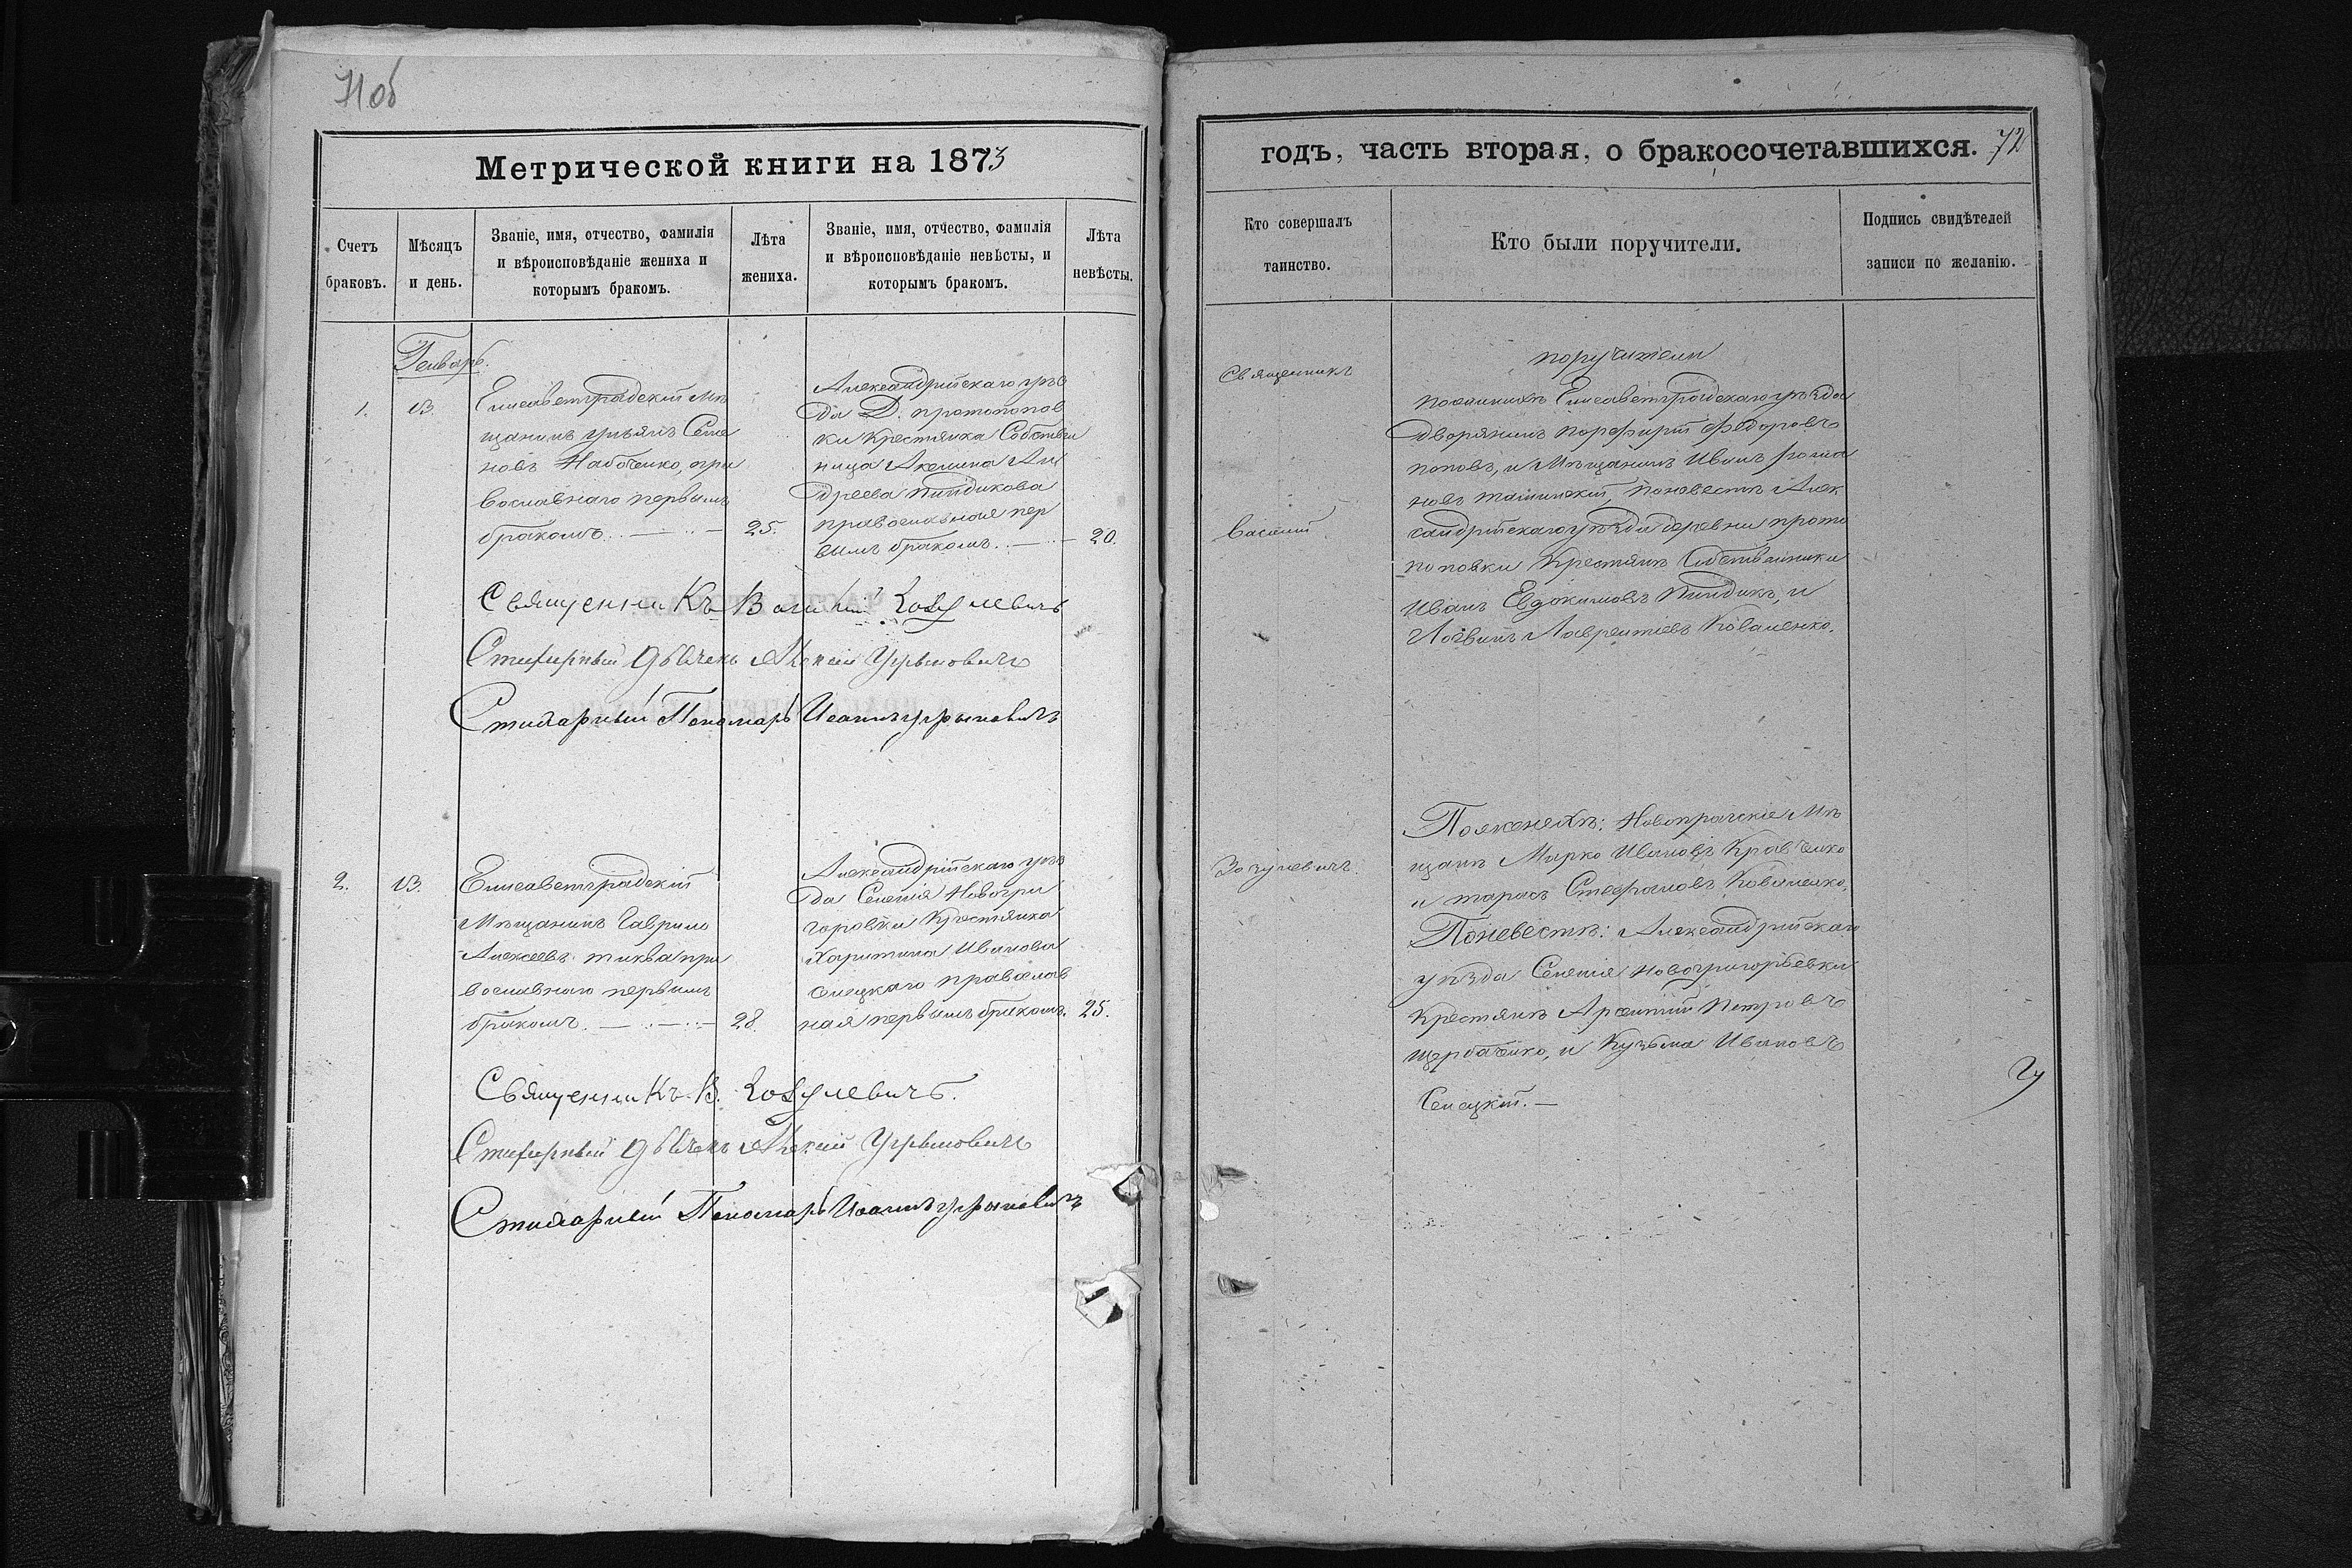 71 об
Метрической книги на 1873
Счетъ браковъ.
Мѣсяцъ и день.
Званіе, имя, отчество, фамилія
и вѣроисповѣданіе жениха и
которымъ бракомъ.
Лѣта жениха.
Званіе, имя, отчество, фамилія
и вѣроисповѣданіе невѣсты, и
которымъ бракомъ.
Лѣта невѣсты.
Генварь.
1.
13.
Елисаветградскій Мѣ
щанинъ Ульянъ Семе
новъ Набоченко, пра
вославнаго первымъ
бракомъ.
25.
Александрійскаго уѣз
да Д. протопопов
ки Крестянка Собствен
ница Акелина Ан
дреева Пиндикова
православная пер
вымъ бракомъ.
20.
Священникъ Василій Зозулевичъ
Стихарный Дьячекъ Алексій Угрыновичъ
Стихарный Пономарь Иоаннъ Угрыновичъ
2.
13.
Елисаветградскій
Мѣщанинъ Гаврило
Алексеевъ тиква пра
вославнаго первымъ
бракомъ.
28.
Александрійскаго уѣз
да Селенія Новогри
горовки Крестянка
Харитина Иванова
Селецкаго православ
ная первымъ бракомъ.
25.
Священникъ В. Зозулевичъ.
Стихарный Дьячекъ Алексій Угрыновичъ
Стихарный Пономарь Иоаннъ Угрыновичъ
годъ, часть вторая, о бракосочетавшихся.
72
Кто совершалъ
таинство.
Кто были поручители.
Подпись свидѣтелей
записи по желанію.
Священникъ
Василій
Зозулевичъ.
поручители
поженихѣ Елисаветградскаго уѣзда
Дворянинъ порфирій Федоровъ
поповъ, и Мѣщанинъ Иванъ рома
новъ, поневестѣ Алек
сандрійскаго уѣзда деревни прото
поповки Крестяне Собственники
Иванъ Евдокимовъ Пиндикъ, и
Логвинъ Лаврентиевъ Коваленко.
Поженихѣ: Новопражскіе Мѣ
щане Марко Ивановъ Кравченко
и тарасъ Стефановъ Коваленко,
Поневестѣ: Александрійскаго
уѣзда Селенія новогригорьевки
Крестяне Арсентій Петровъ
Щербаченко, и Кузьма Ивановъ
Селецкій. —